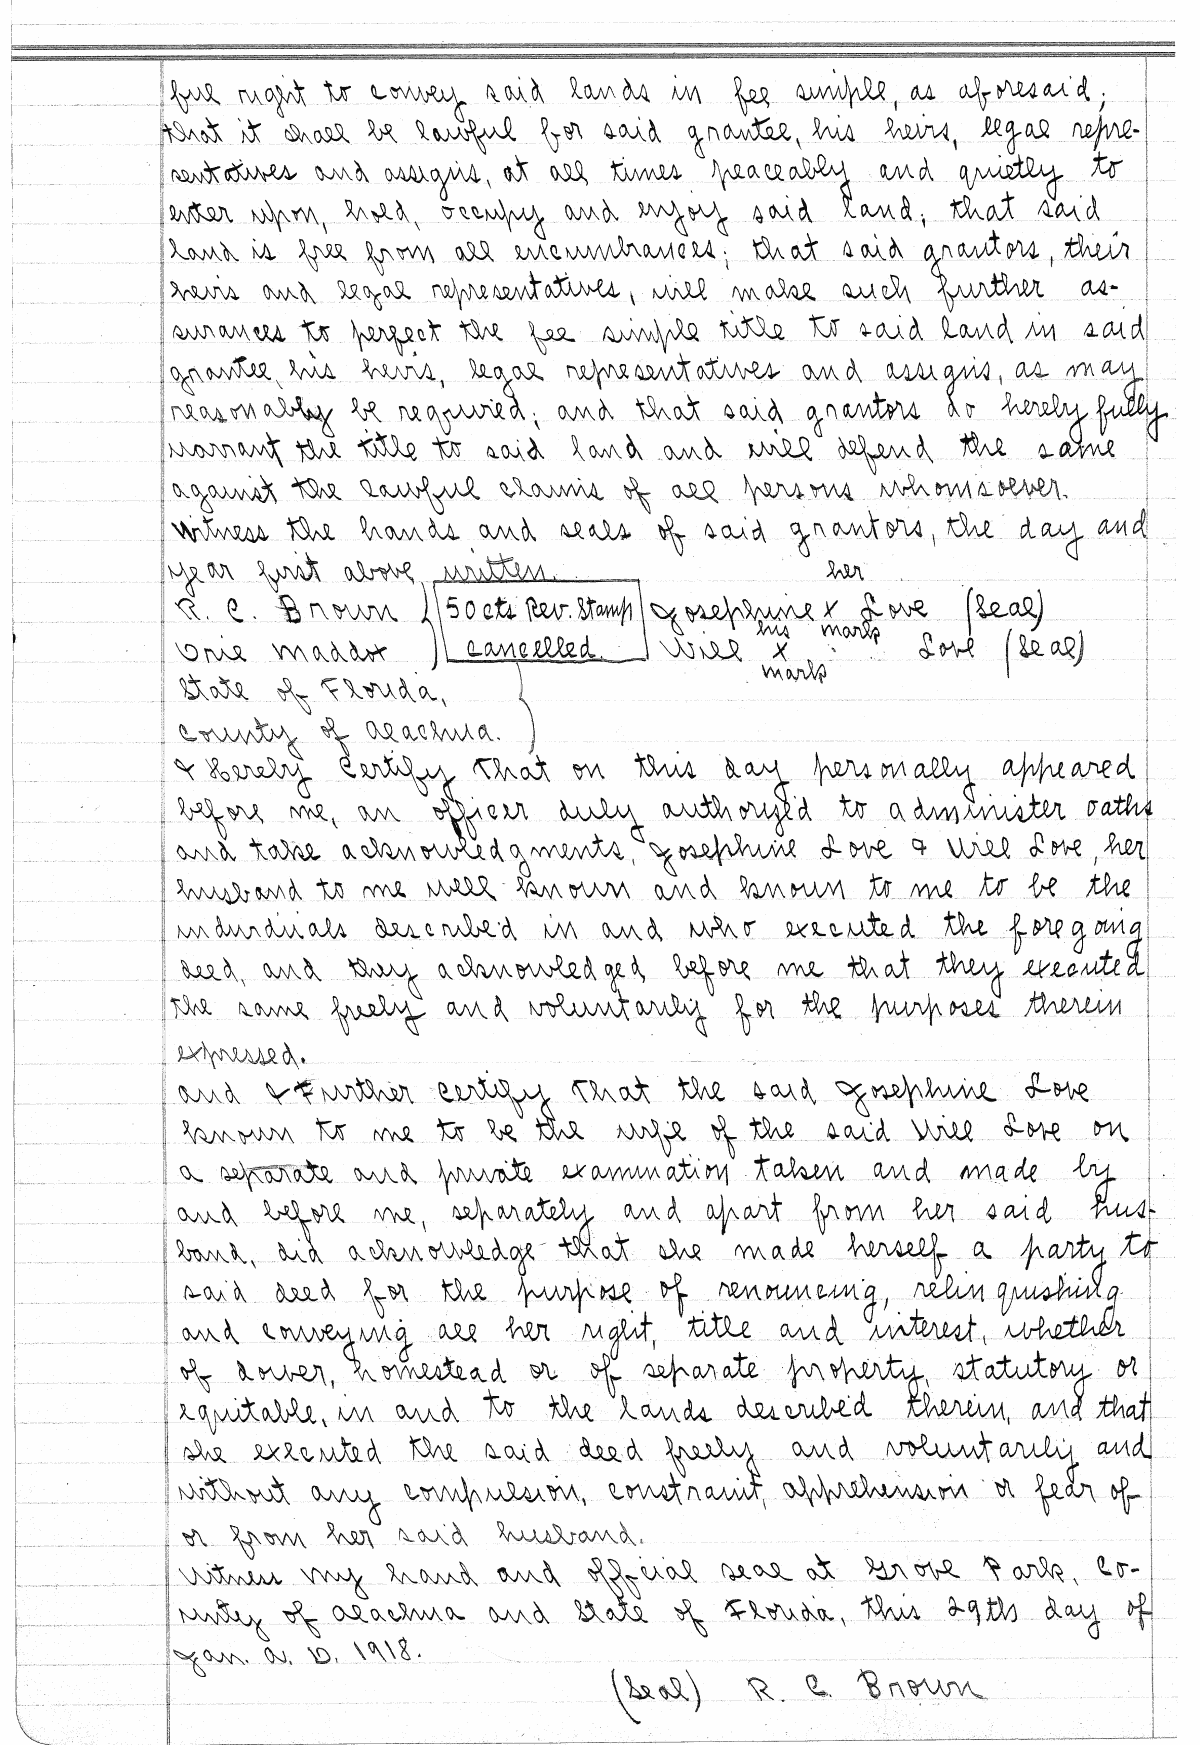 ful right to convey said lands in fee simple, as aforesaid;
that it shall be lawful for said grantee, his heirs, legal repre-
sentatives and assigns, at all times peaceably and quietly to
enter upon, hold, occupy and enjoy said land; that said
land is free from all encumbrances; that said grantors, their
heirs and legal representatives, will make such further as-
surances to perfect the fee simple title to said land in said
grantee, his heirs, legal representatives and assigns, as may
reasonably be required; and that said grantors do hereby fully
warrant the title to said land and will defend the same
against the lawful claims of all persons whomsoever.
Witness the hands and seals of said grantors, the day and
year first above written.
her
R. C. Brown } 50 cts Rev. Stamp Josephine x Love (Seal)
his mark
Orie Maddox ) cancelled. Will x Love (Seal)
mark
State of Florida,
County of Alachua. }
I Hereby Certify That on this day personally appeared
before me, an officer duly authorized to administer oaths
and take acknowledgments, Josephine Love & Will Love, her
husband to me well known and known to me to be the
individuals described in and who executed the foregoing
deed, and they acknowledged before me that they executed
the same freely and voluntarily for the purposes therein
expressed.
and I Further Certify That the said Josephine Love
known to me to be the wife of the said Will Love on
a separate and private examination taken and made by
and before me, separately and apart from her said hus-
band, did acknowledge that she made herself a party to
said deed for the purpose of renouncing, relinquishing
and conveying all her right, title and interest, whether
of dower, homestead or of separate property, statutory or
equitable, in and to the lands described therein, and that
she executed the said deed freely and voluntarily and
without any compulsion, constraint, apprehension or fear of
or from her said husband.
Witness my hand and official seal at Grove Park, Co-
unty of Alachua and State of Florida, this 29th day of
Jan. A. D. 1918.
(Seal) R. C. Brown